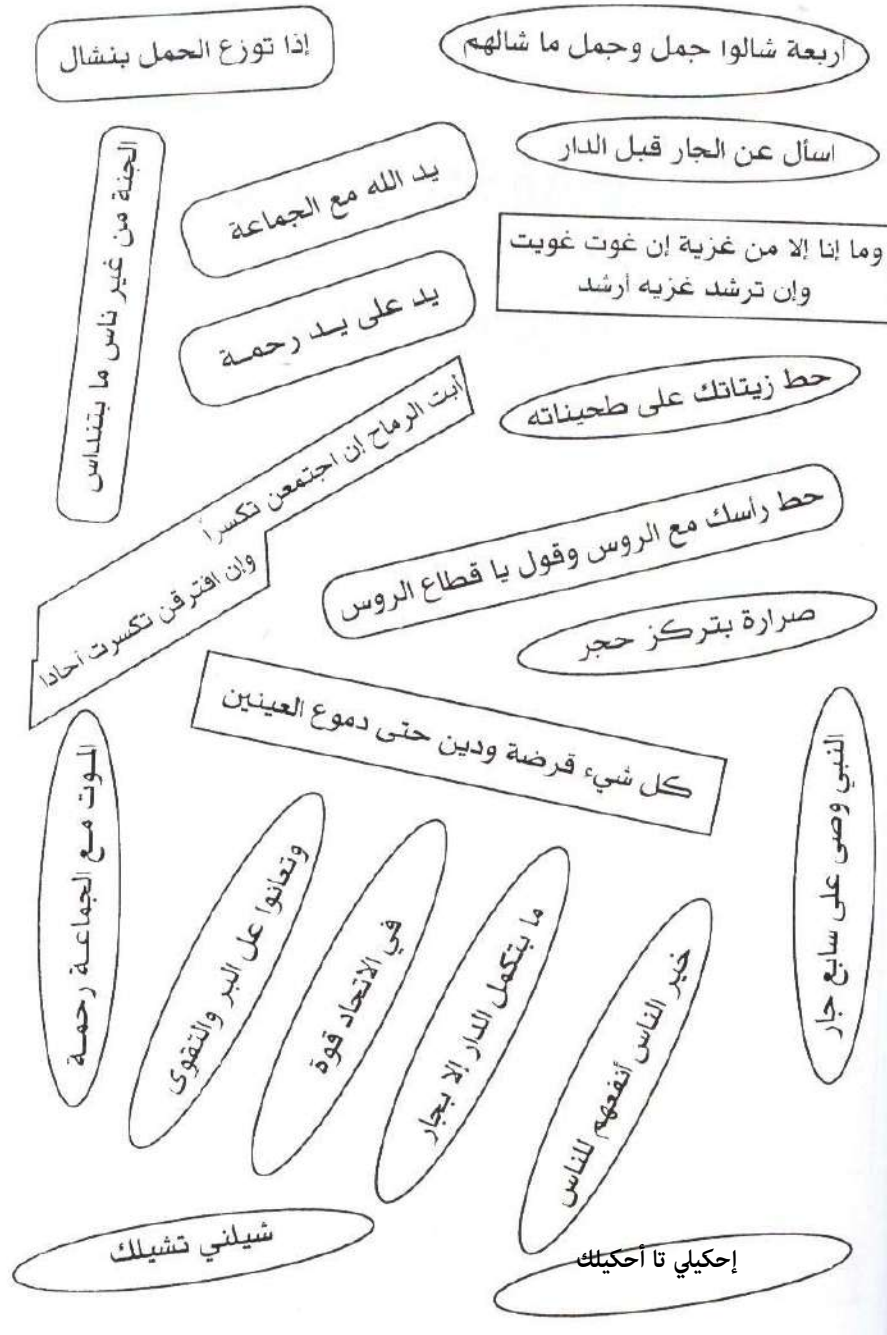 أربعة شالوا جمل وجمل ما شالهم
إذا توزع الحمل بنشال
اسأل عن الجار قبل الدار
يد الله مع الجماعة
الجنة من غير ناس ما بتنداس
وما إنا إلا من غزية إن غوت غويت
وإن ترشد غزيه أرشد
يد على يد رحمة
حط زيتاتك على طحيناته
أبت الرماح إن اجتمعن تكسراً
وإن افترقن تكسرت آحادا
حط رأسك مع الروس وقول يا قطاع الروس
صرارة بتركز حجر
كل شيء قرضة ودين حتى دموع العينين
النبي وصى على سابع جار
الموت مع الجماعة رحمة
وتعانوا عل البر والتقوى
في الاتحاد قوة
ما بتكمل الدار إلا بجار
خير الناس أنفعهم للناس
شيلني تشيلك
إحكيلي تا أحكيلك